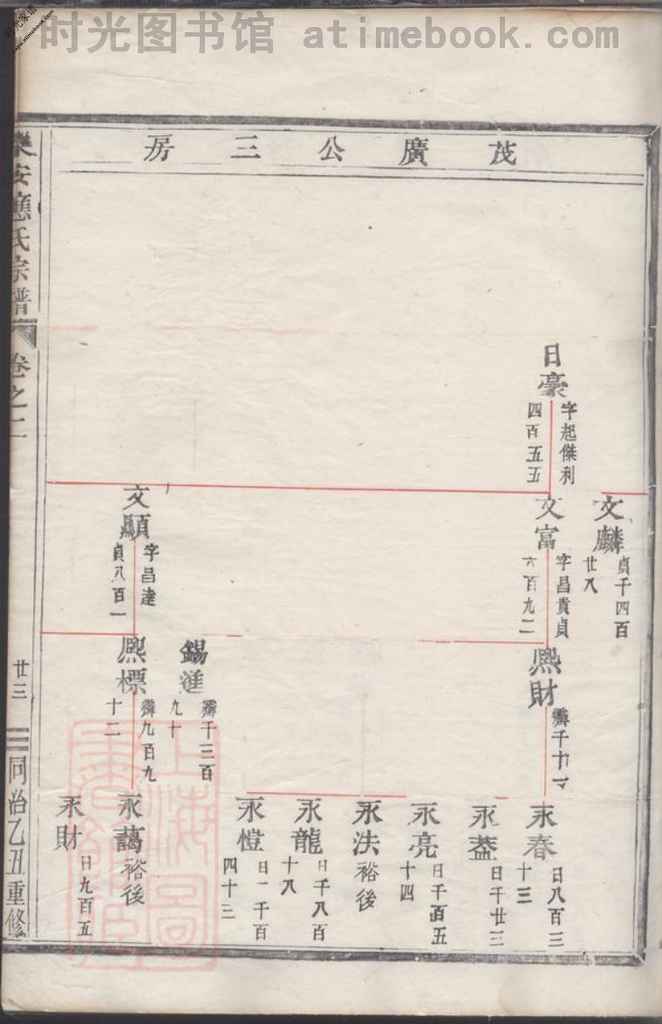 时光图书馆 atimebook.com
茂廣公三房
日豪
字起傑利
四百五五
文麟
貞千四百
廿八
文富
字昌貴貞
六百九二
文顯
字昌達
貞八百一
熙財
霽千十一
錫滙
霽千三百
九十
熙標
霽九百九
十二
永春
日八百三
十三
永葢
日千廿三
永亮
日千百五
十四
永法
裕後
永龍
日千八百
十八
永愷
日一千百
四十三
永藹
裕後
永財
日九百五
樂安應氏宗譜
卷之二
廿三
同治乙丑重修